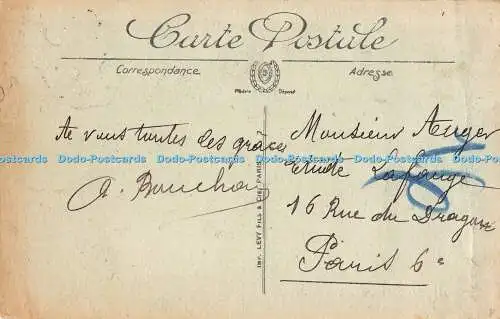 Carte Postale
Correspondance
Adresse
Modèle Déposé
Dodo-Postcards Dodo-Postcards Dodo-Postcards Dodo-Postcards Dodo-Postcards
IMP. LEVY FILS & CIE PARIS
vous toutes des graces
A. Bouchon
Monsieur Auger
Etude Lafouge
16 Rue du Dragon
Paris 6e